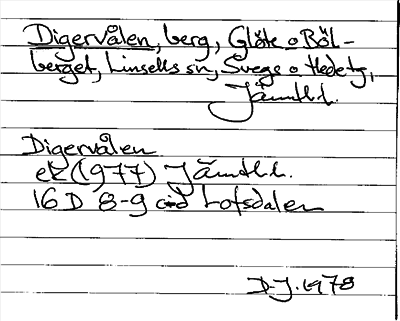 Digervålen, berg, Glöte o Böl-
berget, Linsells sn, Svegs o Hede tg,
Jämtl.l.
Digervålen
ek (1977) Jämtl.l.
16 D 8-9 c-d Lofsdalen
D.J. 1978